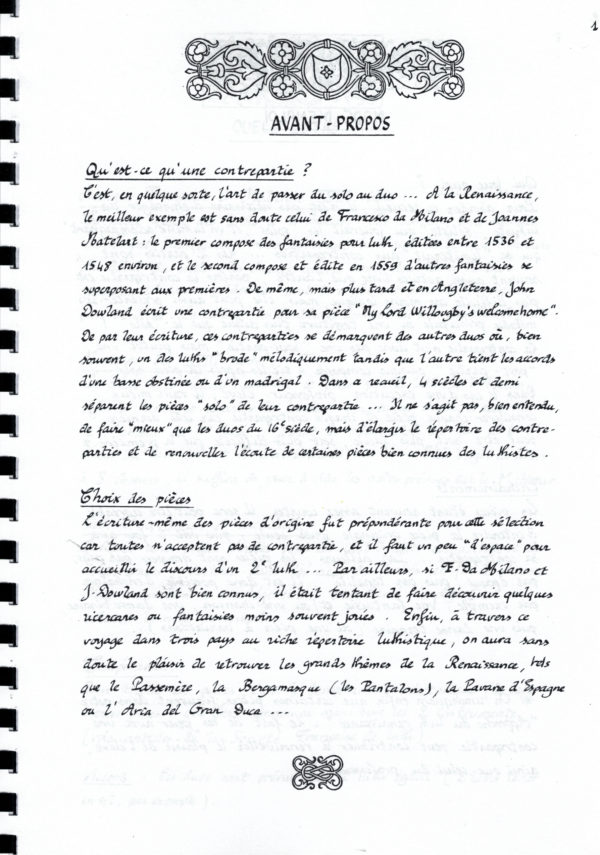 1
AVANT-PROPOS
Qu'est-ce qu'une contrepartie ?
C'est, en quelque sorte, l'art de passer du solo au duo ... A la Renaissance,
le meilleur exemple est sans doute celui de Francesco da Milano et de Joannes
Matelart : le premier compose des fantaisies pour luth, éditées entre 1536 et
1548 environ, et le second compose et édite en 1559 d'autres fantaisies se
superposant aux premières. De même, mais plus tard et en Angleterre, John
Dowland écrit une contrepartie pour sa pièce "My Lord Willougby's welcome home".
De par leur écriture, ces contreparties se démarquent des autres duos où, bien
souvent, un des luths "brode" mélodiquement tandis que l'autre tient les accords
d'une basse obstinée ou d'un madrigal. Dans ce recueil, 4 siècles et demi
séparent les pièces "solo" de leur contrepartie ... Il ne s'agit pas, bien entendu,
de faire "mieux" que les duos du 16e siècle, mais d'élargir le répertoire des contre-
parties et de renouveller l'écoute de certaines pièces bien connues des luthistes.
Choix des pièces
L'écriture-même des pièces d'origine fut prépondérante pour cette sélection
car toutes n'acceptent pas de contrepartie, et il faut un peu "d'espace" pour
accueillir le discours d'un 2e luth ... Par ailleurs, si F. Da Milano et
J. Dowland sont bien connus, il était tentant de faire découvrir quelques
ricercares ou fantaisies moins souvent joués. Enfin, à travers ce
voyage dans trois pays au riche répertoire luthistique, on aura sans
doute le plaisir de retrouver les grands thèmes de la Renaissance, tels
que le Passemèze, la Bergamasque (les Pantalons), la Pavane d'Espagne
ou l'Aria del Gran Duca ....